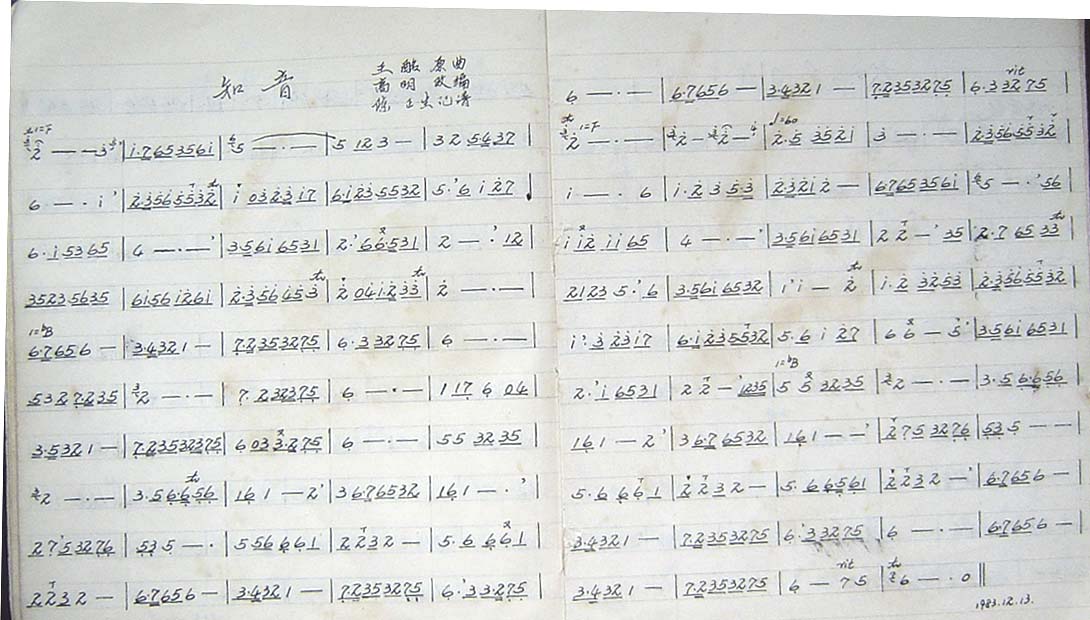 知音
王酩 原曲
高明 改编
记谱
1=F
2 — — 3 | i·7653561 | 5 — · — | 5 1 2 3 — | 3 2 5·437 |
6 — · i ' | 23565532 | i 032317 | 6·i235532 | 5·' 6 i 27 |
6·i 5365 | 4 — · — ' | 3·56i6531 | 2·' 66·531 | 2 — ·' 12 |
3523·5635 | 6i56i26i | 2·356453 | 2 04i·233 | 2 — · — |
1=bB
6·7656 — | 3·4321 — | 7·2353275 | 6·33275 | 6 — · — |
5327235 | 2 — · — | 7·232375 | 6 — · — | 117 6 04 |
3·5321 — | 7·2353275 | 6 033·275 | 6 — · — | 55 3235 |
2 — · — | 3·566·56 | 161 — 2' | 36·76532 | 161 — ·' |
27'53276 | 535 — · | 556661 | 2232 — | 5·6661 |
2232 — | 6·7656 — | 3·4321 — | 7·2353275 | 6·'33·275 |
rit
6 — · — | 6·7656 — | 3·4321 — | 7·2353275 | 6·33275 |
1=F
♩=60
2 — · — | 2 — 2 — | 2·5 352i | 3 — · — | 23565532 |
i — · 6 | i·2 3 5·3 | 2·32i2 — | 67653561 | 5 — ·' 56 |
i i2 ii 65 | 4 — · — ' | 3·56i6531 | 2 2 — ' 35 | 2·7 65 33 |
2123 5·' 6 | 3·56i6532 | i' i — 2 | i·2 3253 | 2·3565532 |
i' 3 23i7 | 6·i235532 | 5·6 i 27 | 6 6 — 5' | 3·56i6531 |
1=bB
2·' i6531 | 2 2 — ' 1235 | 5 5 3235 | 2 — · — | 3·56656 |
161 — 2' | 36·76532 | 161 — — ' | 2753276 | 535 — — |
5·6661 | 2232 — | 5·66561 | 2232 — ' | 6·7656 — |
3·4321 — | 7·2353275 | 6·'33275 | 6 — · — | 6·7656 — |
rit
3·4321 — | 7·2353275 | 6 — 75 | 6 — · 0 ||
1983.12.13.